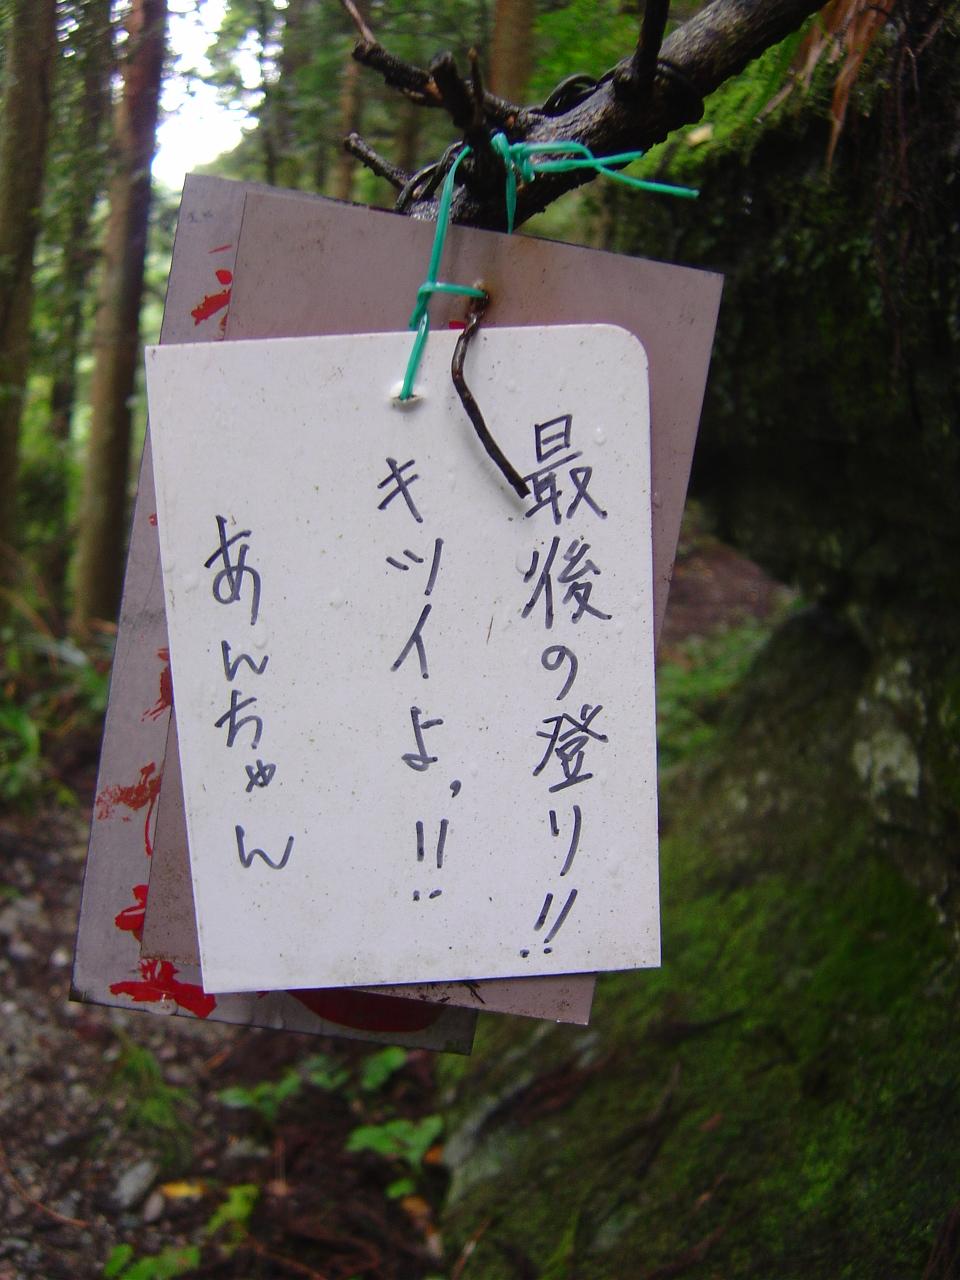 最後の登り!!
キツイよ,!!
あんちゃん